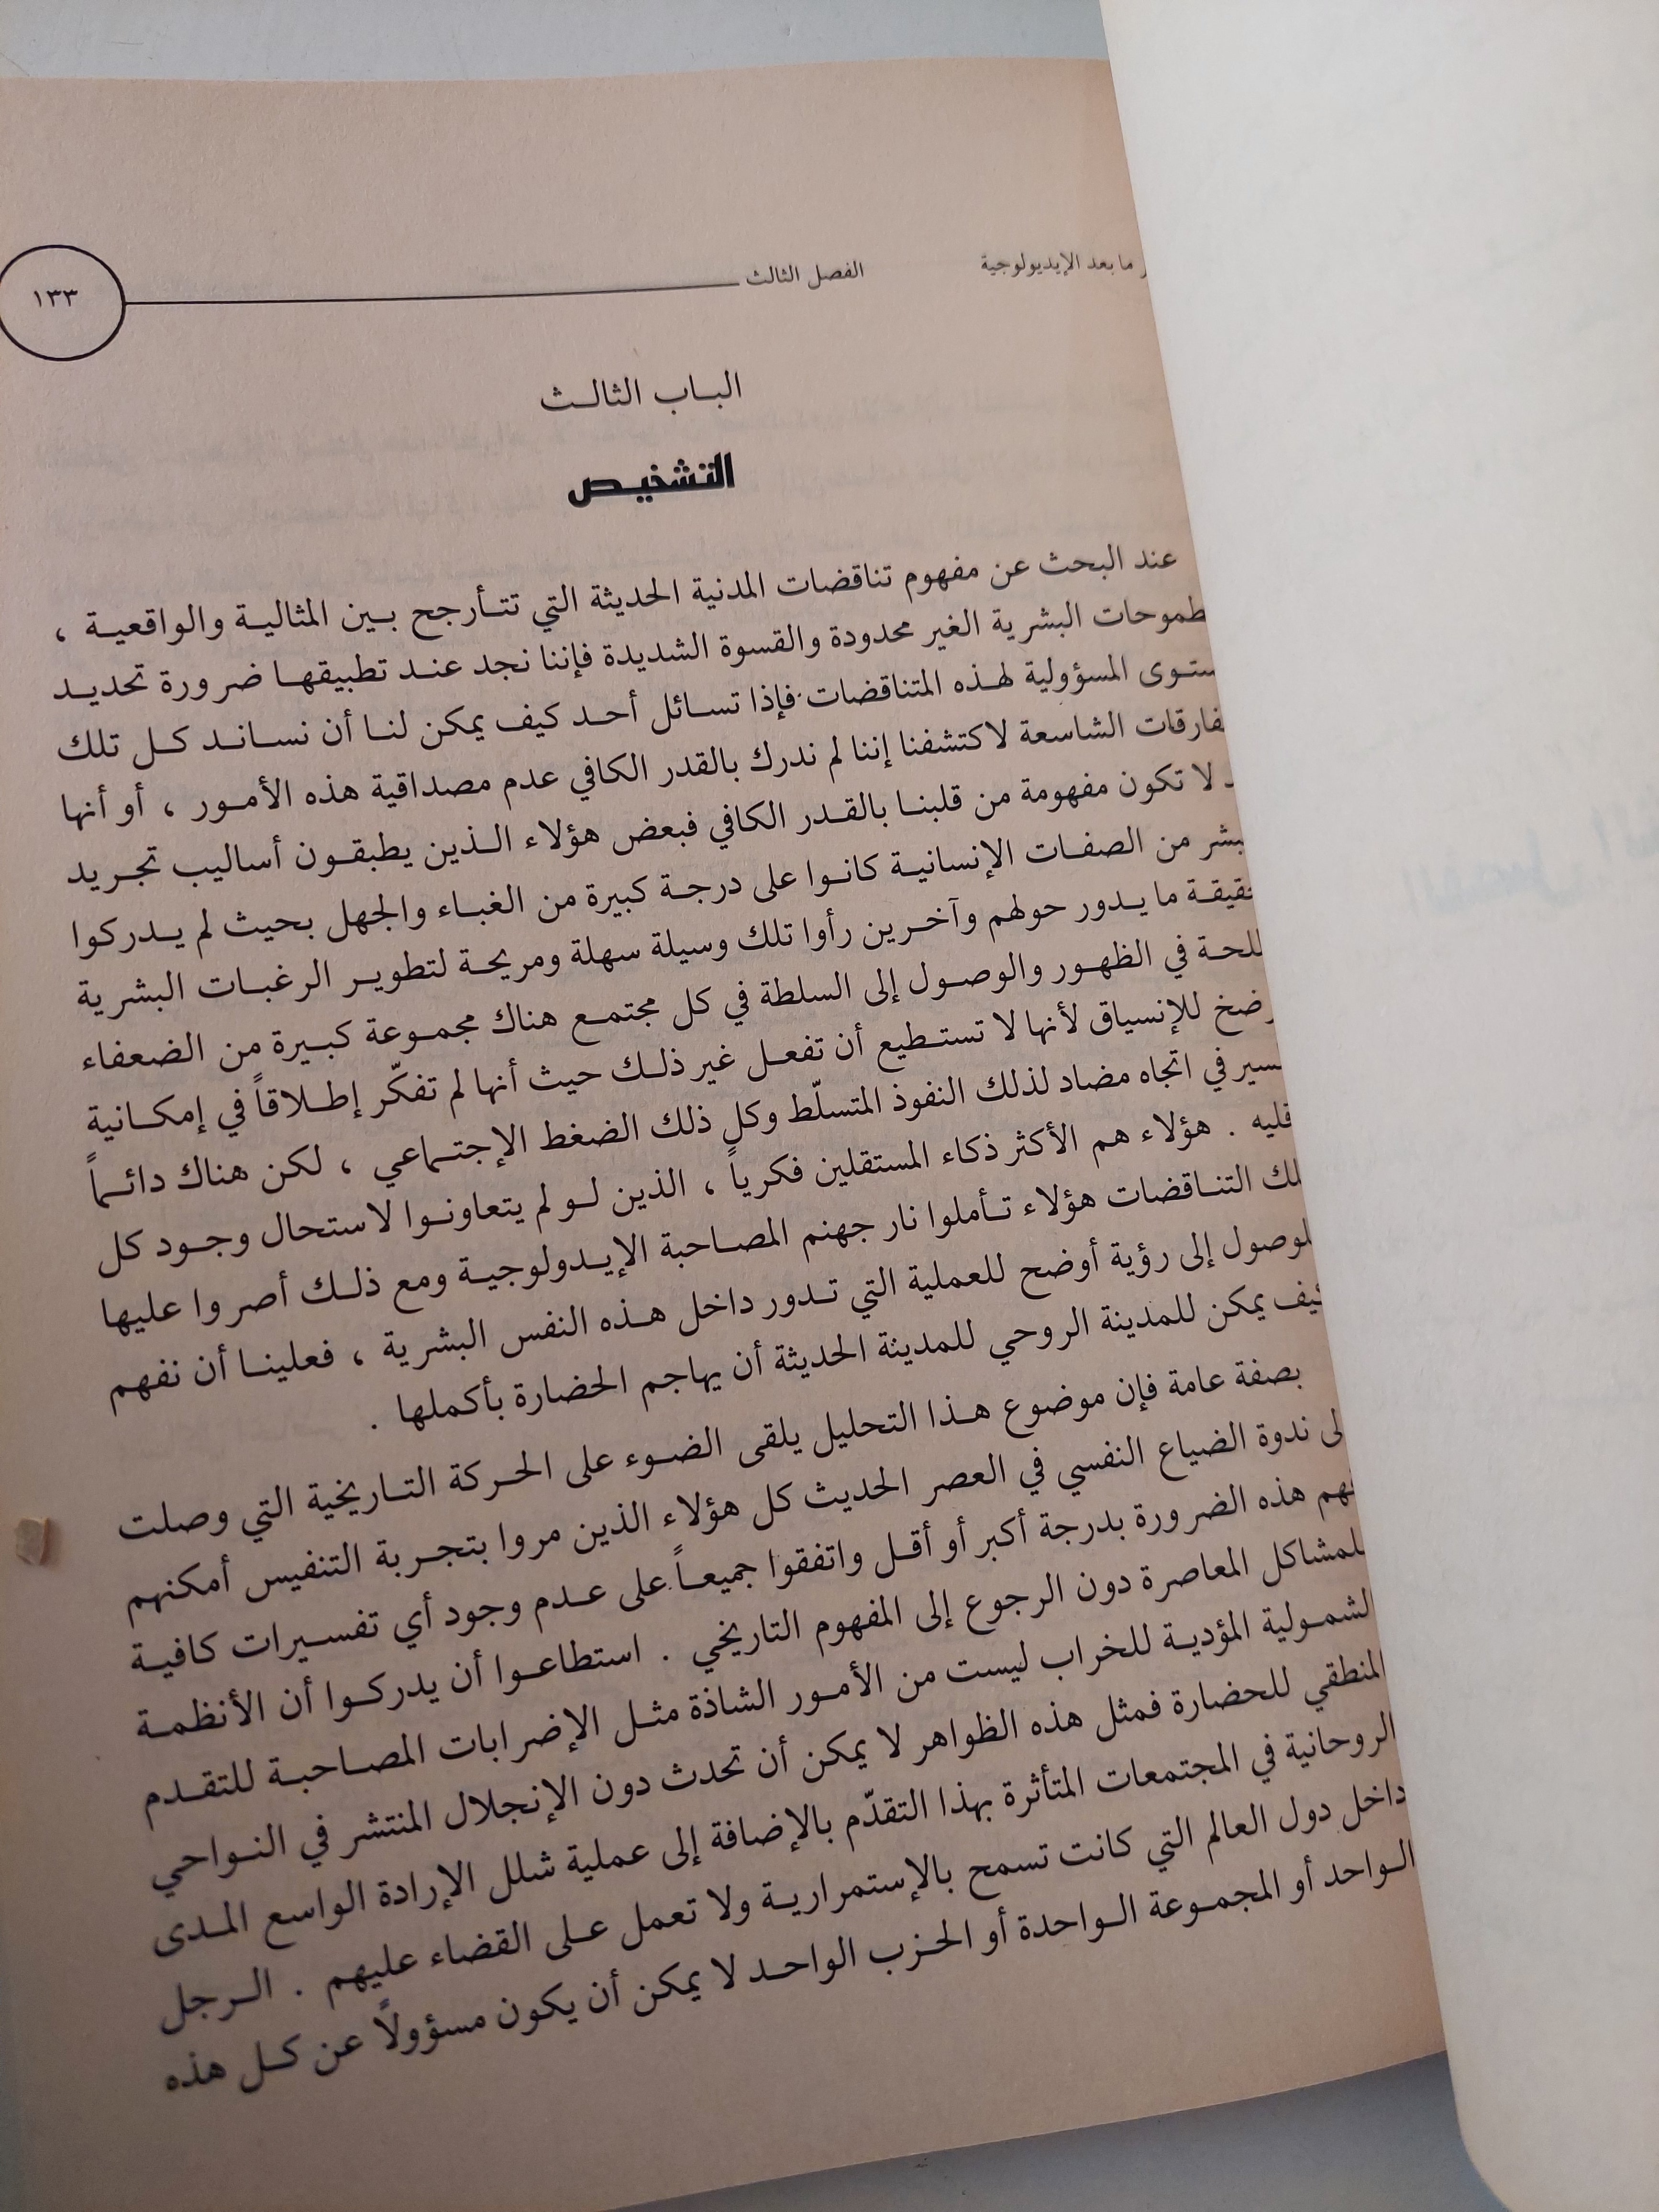 ما بعد الإيديولوجية الفصل الثالث
١٣٣
البـاب الثالـث
التشخيـص
عند البحث عن مفهوم تناقضات المدنية الحديثة التي تتـأرجح بـين المثاليـة والواقعيـة ،
طموحات البشرية الغير محدودة والقسوة الشديدة فإننا نجد عنـد تطبيقهـا ضرورة تحديـد
المسؤولية لهـذه المتناقضات فإذا تسـائل أحـد كيف يمكن لنـا أن نسـانـد كـل تلك
الشاسعة لاكتشفنا إننا لم ندرك بالقدر الكافي عدم مصداقية هذه الأمـور ، أو أنها
لا تكون مفهومة من قلبنـا بالقـدر الكافي فبعض هؤلاء الـذين يطبقـون أساليب تجـريد
من الصفـات الإنسانيـة كانـوا على درجـة كبيرة من الغبـاء والجهل بحيث لم يـدركوا
ما يـدور حولهم وآخـرين رأوا تلك وسيلة سهلة ومريحـة لتطويـر الرغبـات البشرية
في الظهـور والوصـول إلى السلطة في كل مجتمـع هناك مجمـوعة كبـيرة من الضعفاء
للإنسياق لأنها لا تستـطيع أن تفعـل غير ذلـك حيث أنها لم تفكّر إطـلاقاً في إمكـانية
في اتجاه مضاد لذلك النفوذ المتسلّط وكل ذلك الضغط الإجتـماعي ، لكن هناك دائـماً
. هؤلاء هم الأكثر ذكاء المستقلين فكرياً ، الذين لـو لم يتعاونـوا لاستحال وجـود كل
التنـاقضات هؤلاء تـأملوا نار جهنم المصـاحبة الإيـدولوجيـة ومع ذلـك أصروا عليها
إلى رؤية أوضح للعملية التي تـدور داخل هـذه النفس البشرية ، فعلينـا أن نفهم
يمكن للمدينة الروحي للمدينة الحديثة أن يهاجم الحضارة بأكملها .
بصفة عامة فإن موضوع هـذا التحليل يلقى الضـوء على الحـركة التـاريخية التي وصلت
ندوة الضياع النفسي في العصر الحديث كل هؤلاء الذين مروا بتجـربة التنفيس أمكنهم
هذه الضرورة بدرجة أكبر أو أقـل واتفقوا جميعـاً على عـدم وجود أي تفسـيرات كافيـة
للمشاكل المعاصرة دون الرجوع إلى المفهوم التاريخي . استطاعـوا أن يدركـوا أن الأنظمـة
الشمـولية المؤديـة للخراب ليست من الأمـور الشاذة مثـل الإضرابات المصـاحبـة للتقـدم
المنطقي للحضارة فمثل هذه الظواهر لا يمكن أن تحدث دون الإنجلال المنتشر في النـواحي
الروحانية في المجتمعات المتأثرة بهذا التقدّم بالإضافة إلى عملية شلل الإرادة الواسع المـدى
داخل دول العالم التي كانت تسمح بالإستمراريـة ولا تعمل عـلى القضاء عليهم . الـرجل
الـواحد أو المجمـوعة الـواحدة أو الحـزب الواحـد لا يمكن أن يكون مسؤولاً عن كـل هذه